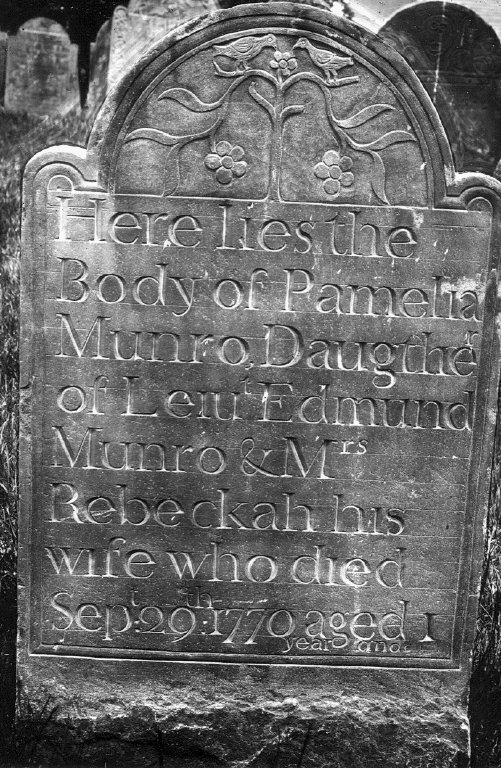 Here lies the
Body of Pamelia
Munro, Daugthër
of Leiuᵗ Edmund
Munro & Mʳˢ
Rebeckah his
wife who died
Sepᵗ: 29ᵗʰ: 1770 aged 1
year and